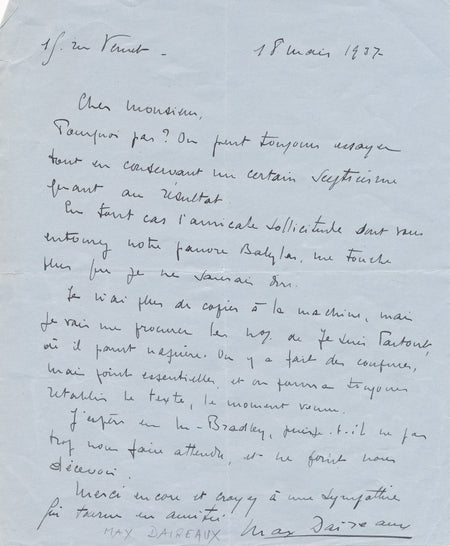 15, rue Vernet - 18 mars 1937
Cher Monsieur,
Pourquoi pas? On peut toujours essayer
tout en conservant un certain scepticisme
quant au résultat
En tout cas l'amicale sollicitude dont vous
entourez notre pauvre Babylas, me touche
plus que je ne saurais dire.
Je n'ai plus de copies à la machine, mais
je vais me procurer les nos. de Je suis Partout,
où il parut naguère. On y a fait des coupures,
mais point essentielles, et on pourra toujours
rétablir le texte, le moment venu.
J'espère en M. Bradley, puisse-t-il ne pas
trop nous faire attendre, et ne point nous
décevoir.
Merci encore et croyez à une sympathie
qui tourne en amitié
Max Daireaux
MAX DAIREAUX